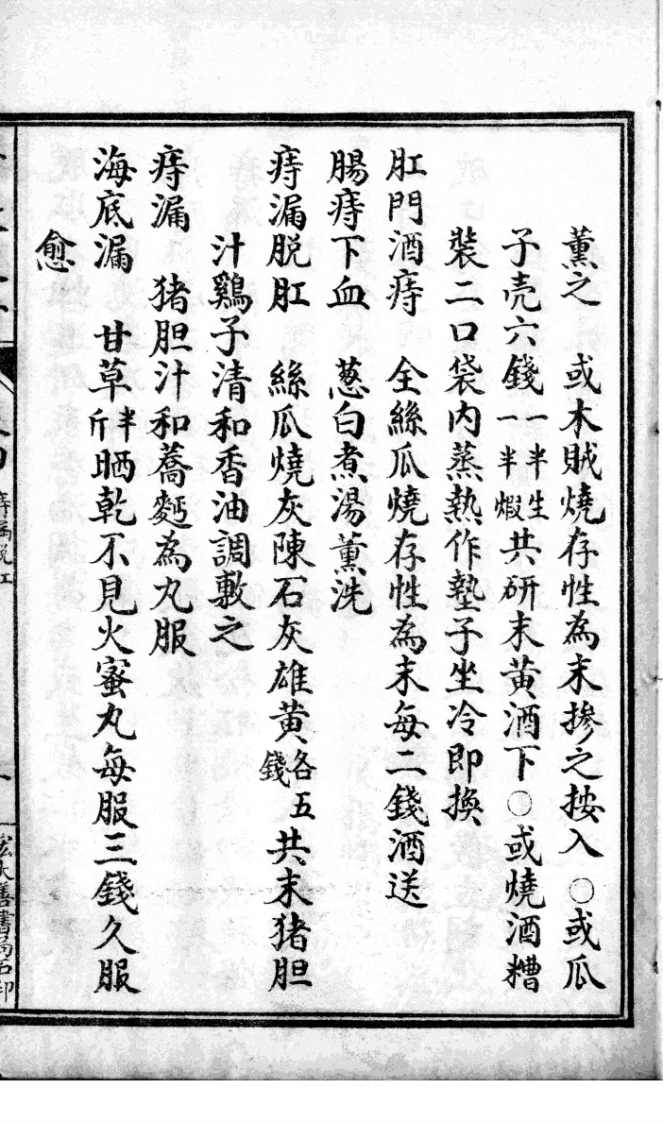 薰之　或木賊燒存性為末摻之按入○或瓜
子壳六錢一半生一半煆共研末黄酒下○或燒酒糟
裝二口袋内蒸熱作墊子坐冷即換
肛門酒痔　全絲瓜燒存性為末每二錢酒送
腸痔下血　葱白煮湯薰洗
痔漏脱肛　絲瓜燒灰陳石灰雄黄各五錢共末猪胆
汁鷄子清和香油調敷之
痔漏　猪胆汁和蕎麪為丸服
海底漏　甘草半斤晒乾不見火蜜丸每服三錢久服
愈
痔漏脱肛
宏大善書局石印